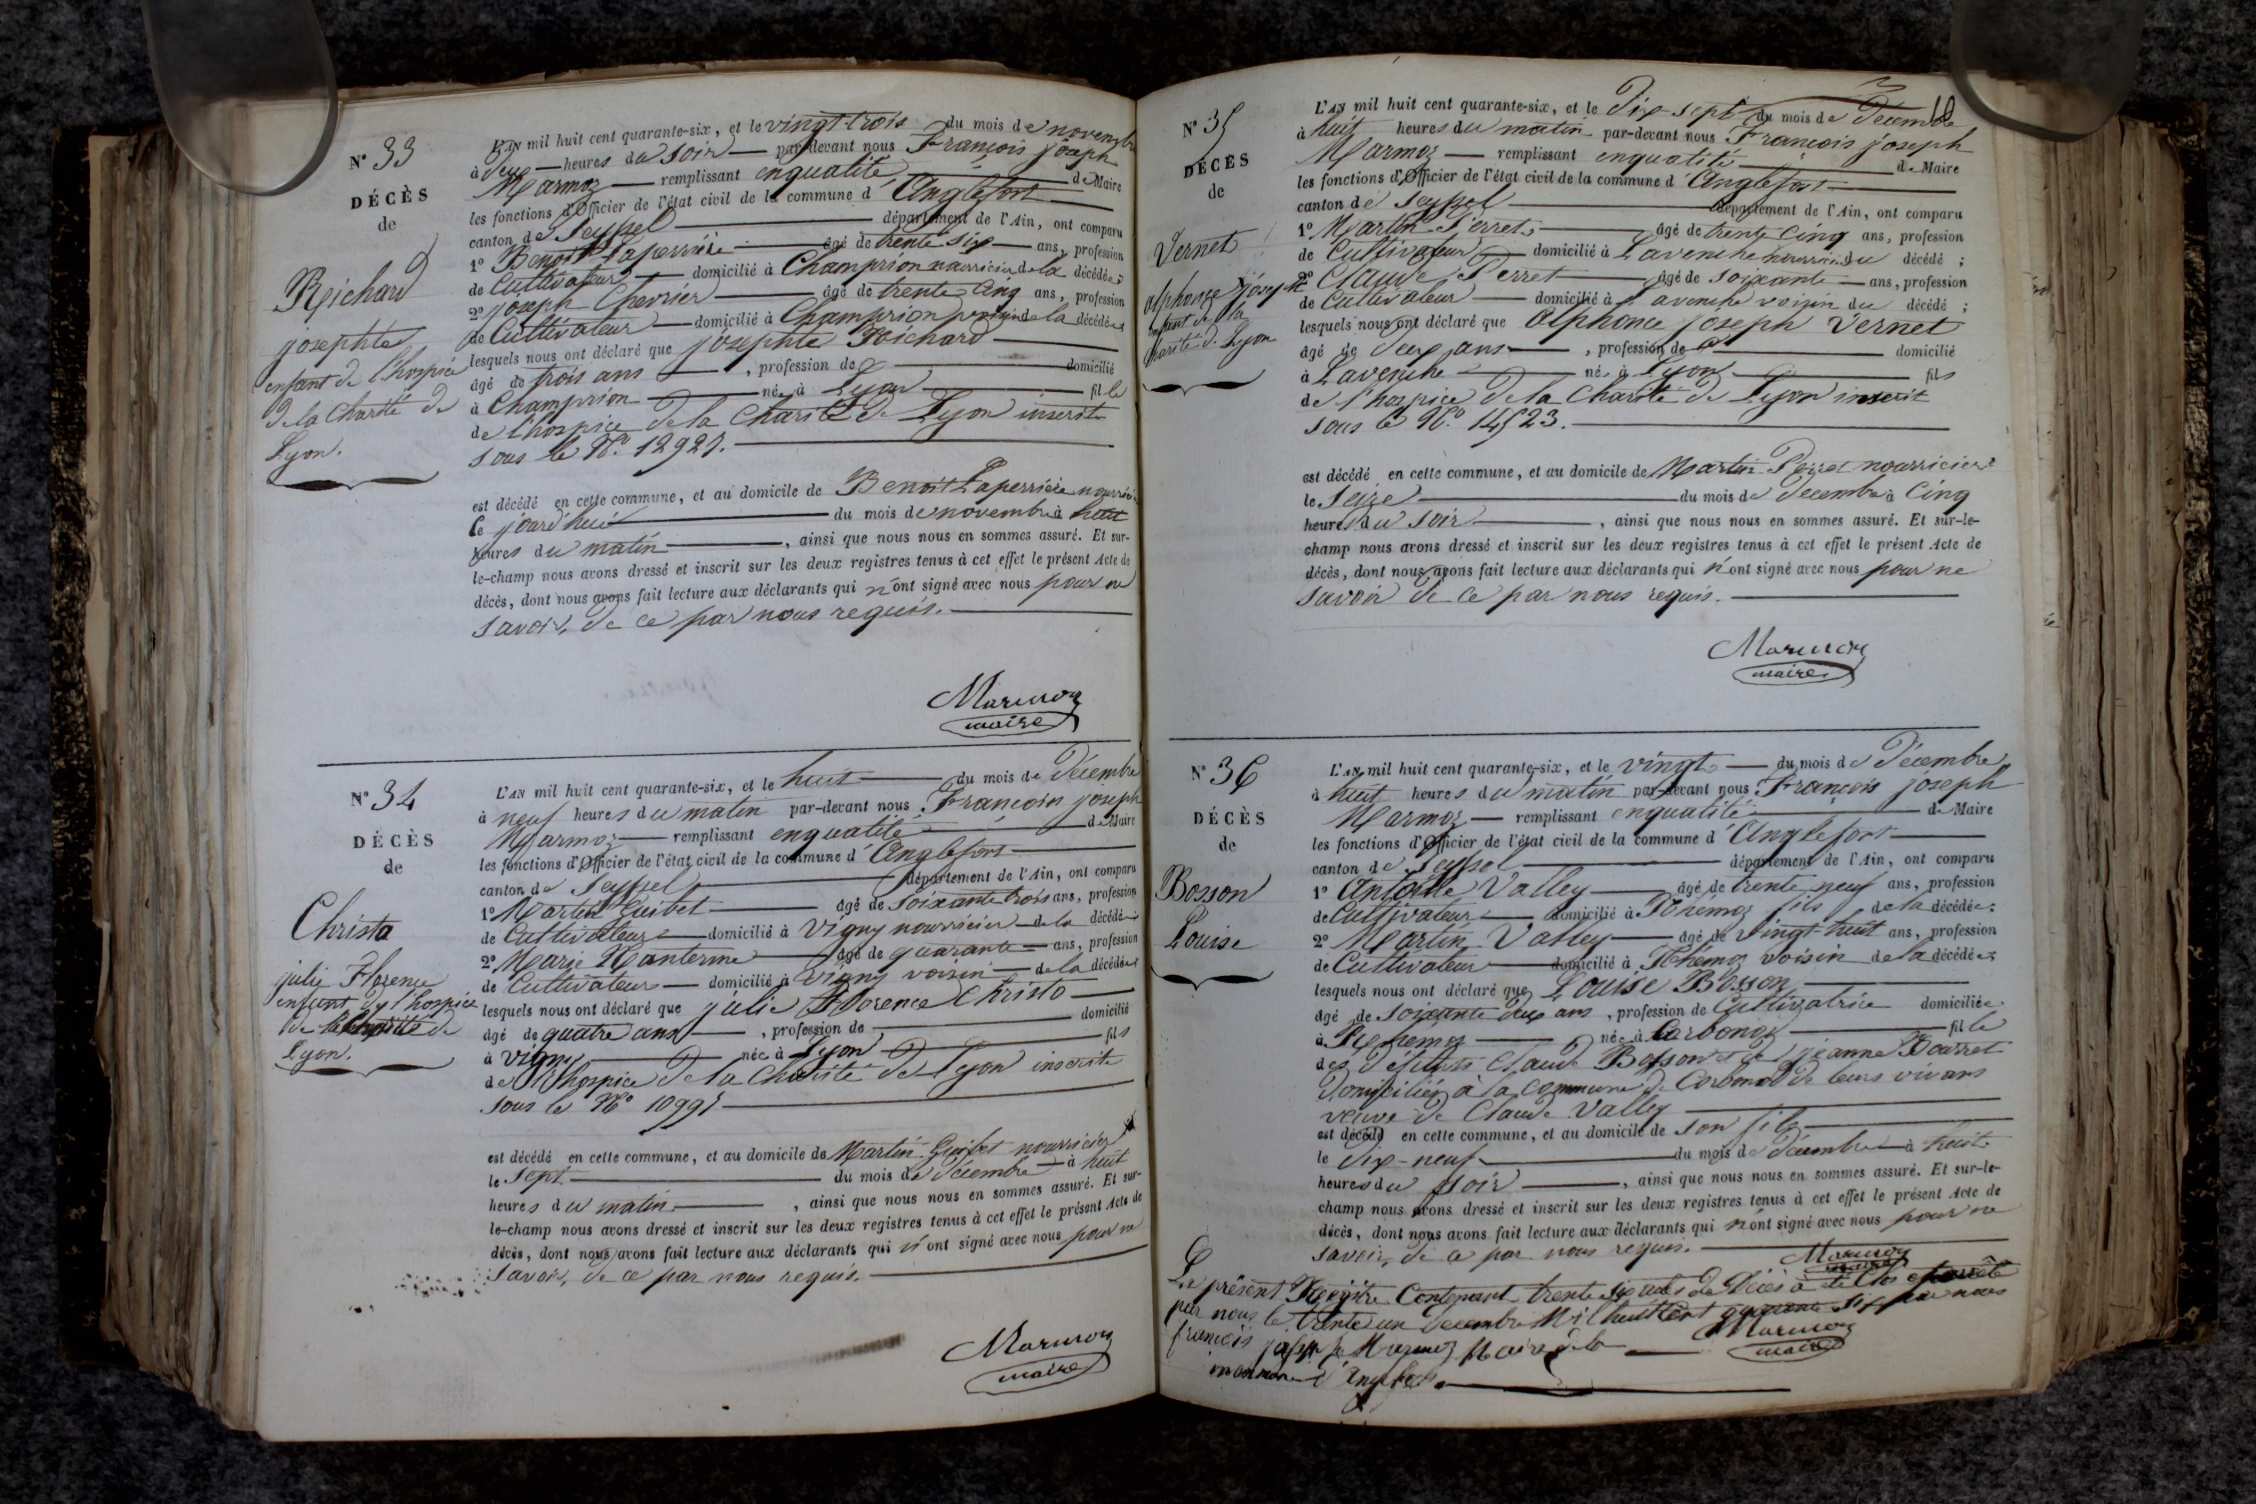 N° 33
DÉCÈS
de
Reichard
josephte
enfant de l'hospice
de la Charité de
Lyon.
L'AN mil huit cent quarante-six, et le vingt-trois du mois de novembre
à deux heures du soir par-devant nous François joseph
Marmoz remplissant enqualité de Maire
les fonctions d'Officier de l'état civil de la commune d'Anglefort
canton de Seyssel département de l'Ain, ont comparu
1° Benoit Laperrière âgé de trente six ans, profession
de Cultivateur domicilié à Champrion nourricier de la décédée ;
2° joseph Chevrier âgé de trente cinq ans, profession
de Cultivateur domicilié à Champrion voisin de la décédée
lesquels nous ont déclaré que josephte Reichard
âgé de trois ans , profession de domicilié
à Champrion née à Lyon fille
de l'hospice de la Charité de Lyon inscrite
sous le N° 12927.
est décédé en cette commune, et au domicile de Benoit Laperrière nourricier
le jourd'hui du mois de novembre à huit
heures du matin , ainsi que nous nous en sommes assuré. Et sur-
le-champ nous avons dressé et inscrit sur les deux registres tenus à cet effet le présent Acte de
décès, dont nous avons fait lecture aux déclarants qui n'ont signé avec nous pour ne
savoir, de ce par nous requis.
Marmoz
maire
N° 34
DÉCÈS
de
Christo
julie Florence
enfant de l'hospice
de la charité de
Lyon.
L'AN mil huit cent quarante-six, et le huit du mois de Décembre
à neuf heures du matin par-devant nous François joseph
Marmoz remplissant enqualité de Maire
les fonctions d'Officier de l'état civil de la commune d'Anglefort
canton de Seyssel département de l'Ain, ont comparu
1° Martin Guibet âgé de soixante trois ans, profession
de Cultivateur domicilié à Vigny nourricier de la décédée
2° Marie âgé de quarante ans, profession
de Cultivateur domicilié à Vigny voisin de la décédée
lesquels nous ont déclaré que julie Florence Christo
âgé de quatre ans , profession de domicilié
à Vigny née à Lyon fils
de l'hospice de la Charité de Lyon inscrite
sous le N° 10997
est décédé en cette commune, et au domicile de Martin Guibet nourricier
le sept du mois de Décembre à huit
heures du matin , ainsi que nous nous en sommes assuré. Et sur-
le-champ nous avons dressé et inscrit sur les deux registres tenus à cet effet le présent Acte de
décès, dont nous avons fait lecture aux déclarants qui n'ont signé avec nous pour ne
savoir, de ce par nous requis.
Marmoz
maire
N° 35
DÉCÈS
de
Vernet
alphonce joseph
enfant de la
charité de Lyon
L'AN mil huit cent quarante-six, et le Dix sept du mois de Décembre
à huit heures du matin par-devant nous François joseph
Marmoz remplissant enqualité de Maire
les fonctions d'Officier de l'état civil de la commune d'Anglefort
canton de Seyssel département de l'Ain, ont comparu
1° Martin Perret âgé de trente cinq ans, profession
de Cultivateur domicilié à Lavenche nourricier du décédé ;
2° Claude Perret âgé de soixante ans, profession
de Cultivateur domicilié à Lavenche voisin du décédé ;
lesquels nous ont déclaré que Alphonce joseph Vernet
âgé de deux ans , profession de domicilié
à Lavenche né à Lyon fils
de l'hospice de la Charité de Lyon inscrit
sous le N° 14523.
est décédé en cette commune, et au domicile de Martin Perret nourricier
le seize du mois de Decembre à cinq
heures du soir , ainsi que nous nous en sommes assuré. Et sur-le-
champ nous avons dressé et inscrit sur les deux registres tenus à cet effet le présent Acte de
décès, dont nous avons fait lecture aux déclarants qui n'ont signé avec nous pour ne
savoir de ce par nous requis.
Marmoz
maire
N° 36
DÉCÈS
de
Bosson
Louise
L'AN mil huit cent quarante-six, et le vingt du mois de Décembre
à huit heures du matin par-devant nous François joseph
Marmoz remplissant enqualité de Maire
les fonctions d'Officier de l'état civil de la commune d'Anglefort
canton de Seyssel département de l'Ain, ont comparu
1° Antoine Valley âgé de trente neuf ans, profession
de Cultivateur domicilié à Rhémoz fils de la décédée ;
2° Martin Valley âgé de vingt huit ans, profession
de Cultivateur domicilié à Rhémoz voisin de la décédée
lesquels nous ont déclaré que Louise Bosson
âgé de soixante deux ans , profession de Cultivatrice domiciliée
à Rhemoz née à Corbonod fille
des défunts Claude Bosson et de jeanne Bourret
domiciliés à la commune de Corbonod de leurs vivans
veuve de Claude Valley
est décédé en cette commune, et au domicile de son fils
le Dix-neuf du mois de Décembre à huit
heures du soir , ainsi que nous nous en sommes assuré. Et sur-le-
champ nous avons dressé et inscrit sur les deux registres tenus à cet effet le présent Acte de
décès, dont nous avons fait lecture aux déclarants qui n'ont signé avec nous pour ne
savoir, de ce par nous requis.
Marmoz
maire
Le présent Registre Contenant trente six actes de Décès à été Clos et arrêté
par nous le trente un decembre Mil huit Cent quarante six par nous
françois joseph Marmoz Maire de la
commune d'Anglefort
Marmoz
maire